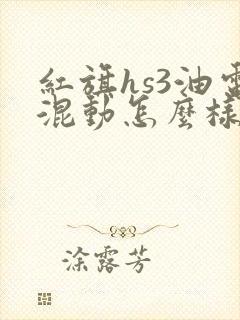 紅旗hs3油電
混動怎麼樣
涂露芳